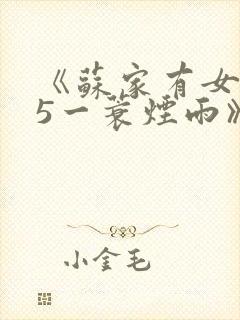 《蘇家有女
5一蓑煙雨》
小金毛